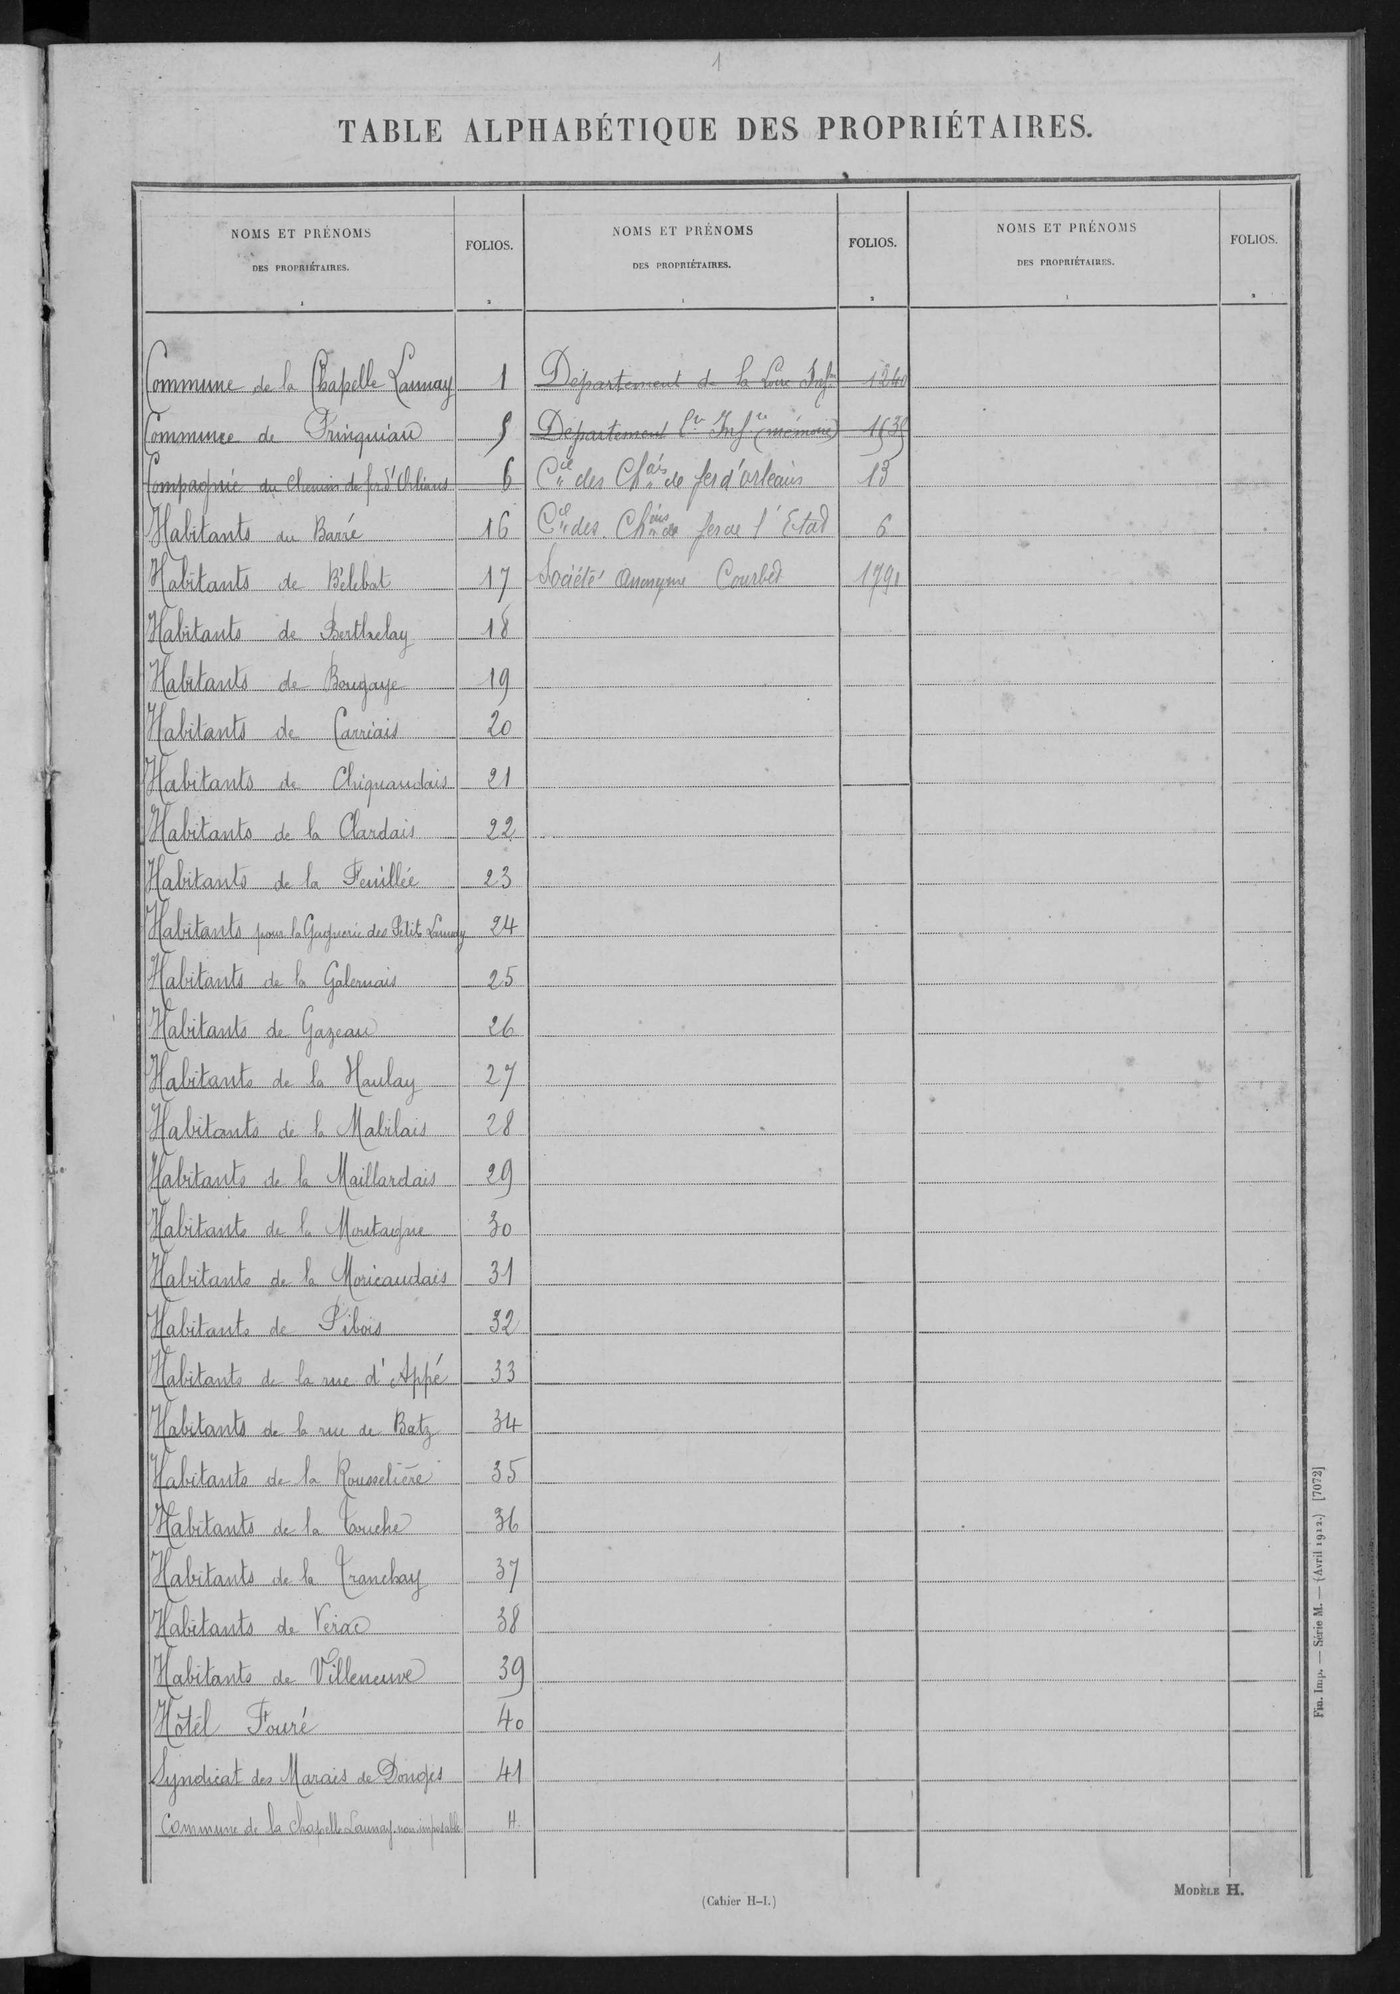 1
TABLE ALPHABÉTIQUE DES PROPRIÉTAIRES.
NOMS ET PRÉNOMS
DES PROPRIÉTAIRES.
1
FOLIOS.
2
NOMS ET PRÉNOMS
DES PROPRIÉTAIRES.
1
FOLIOS.
2
NOMS ET PRÉNOMS
DES PROPRIÉTAIRES.
1
FOLIOS.
2
Commune de la Chapelle Launay 1
Commune de Prinquiau 5
Compagnie du Chemin de fer d'Orléans 6
Habitants du Barré 16
Habitants de Bélébat 17
Habitants de Berthelay 18
Habitants de Bougaye 19
Habitants de Carriais 20
Habitants de Chiquaudais 21
Habitants de la Clardais 22
Habitants de la Feuillée 23
Habitants pour la Gagnerie des Petits Launay 24
Habitants de la Galernais 25
Habitants de Gazeau 26
Habitants de la Haulay 27
Habitants de la Mabilais 28
Habitants de la Maillardais 29
Habitants de la Montagne 30
Habitants de la Moricaudais 31
Habitants de Pibois 32
Habitants de la rue d'Appé 33
Habitants de la rue de Batz 34
Habitants de la Rousselière 35
Habitants de la Touche 36
Habitants de la Tranchay 37
Habitants de Verac 38
Habitants de Villeneuve 39
Hôtel Fouré 40
Syndicat des Marais de Donges 41
Commune de la Chapelle Launay non imposable 4
Département de la Loire Infre 1240
Département Lre Infre (mémoire) 1535
Cie des Chins de fer d'orléans 13
Cie des Chins de fer de l'Etat 6
Société Anonyme Courbet 1791
(Cahier H-I.)
MODÈLE H.
Fin. Imp. — Série M. — (Avril 1912.) [7072]